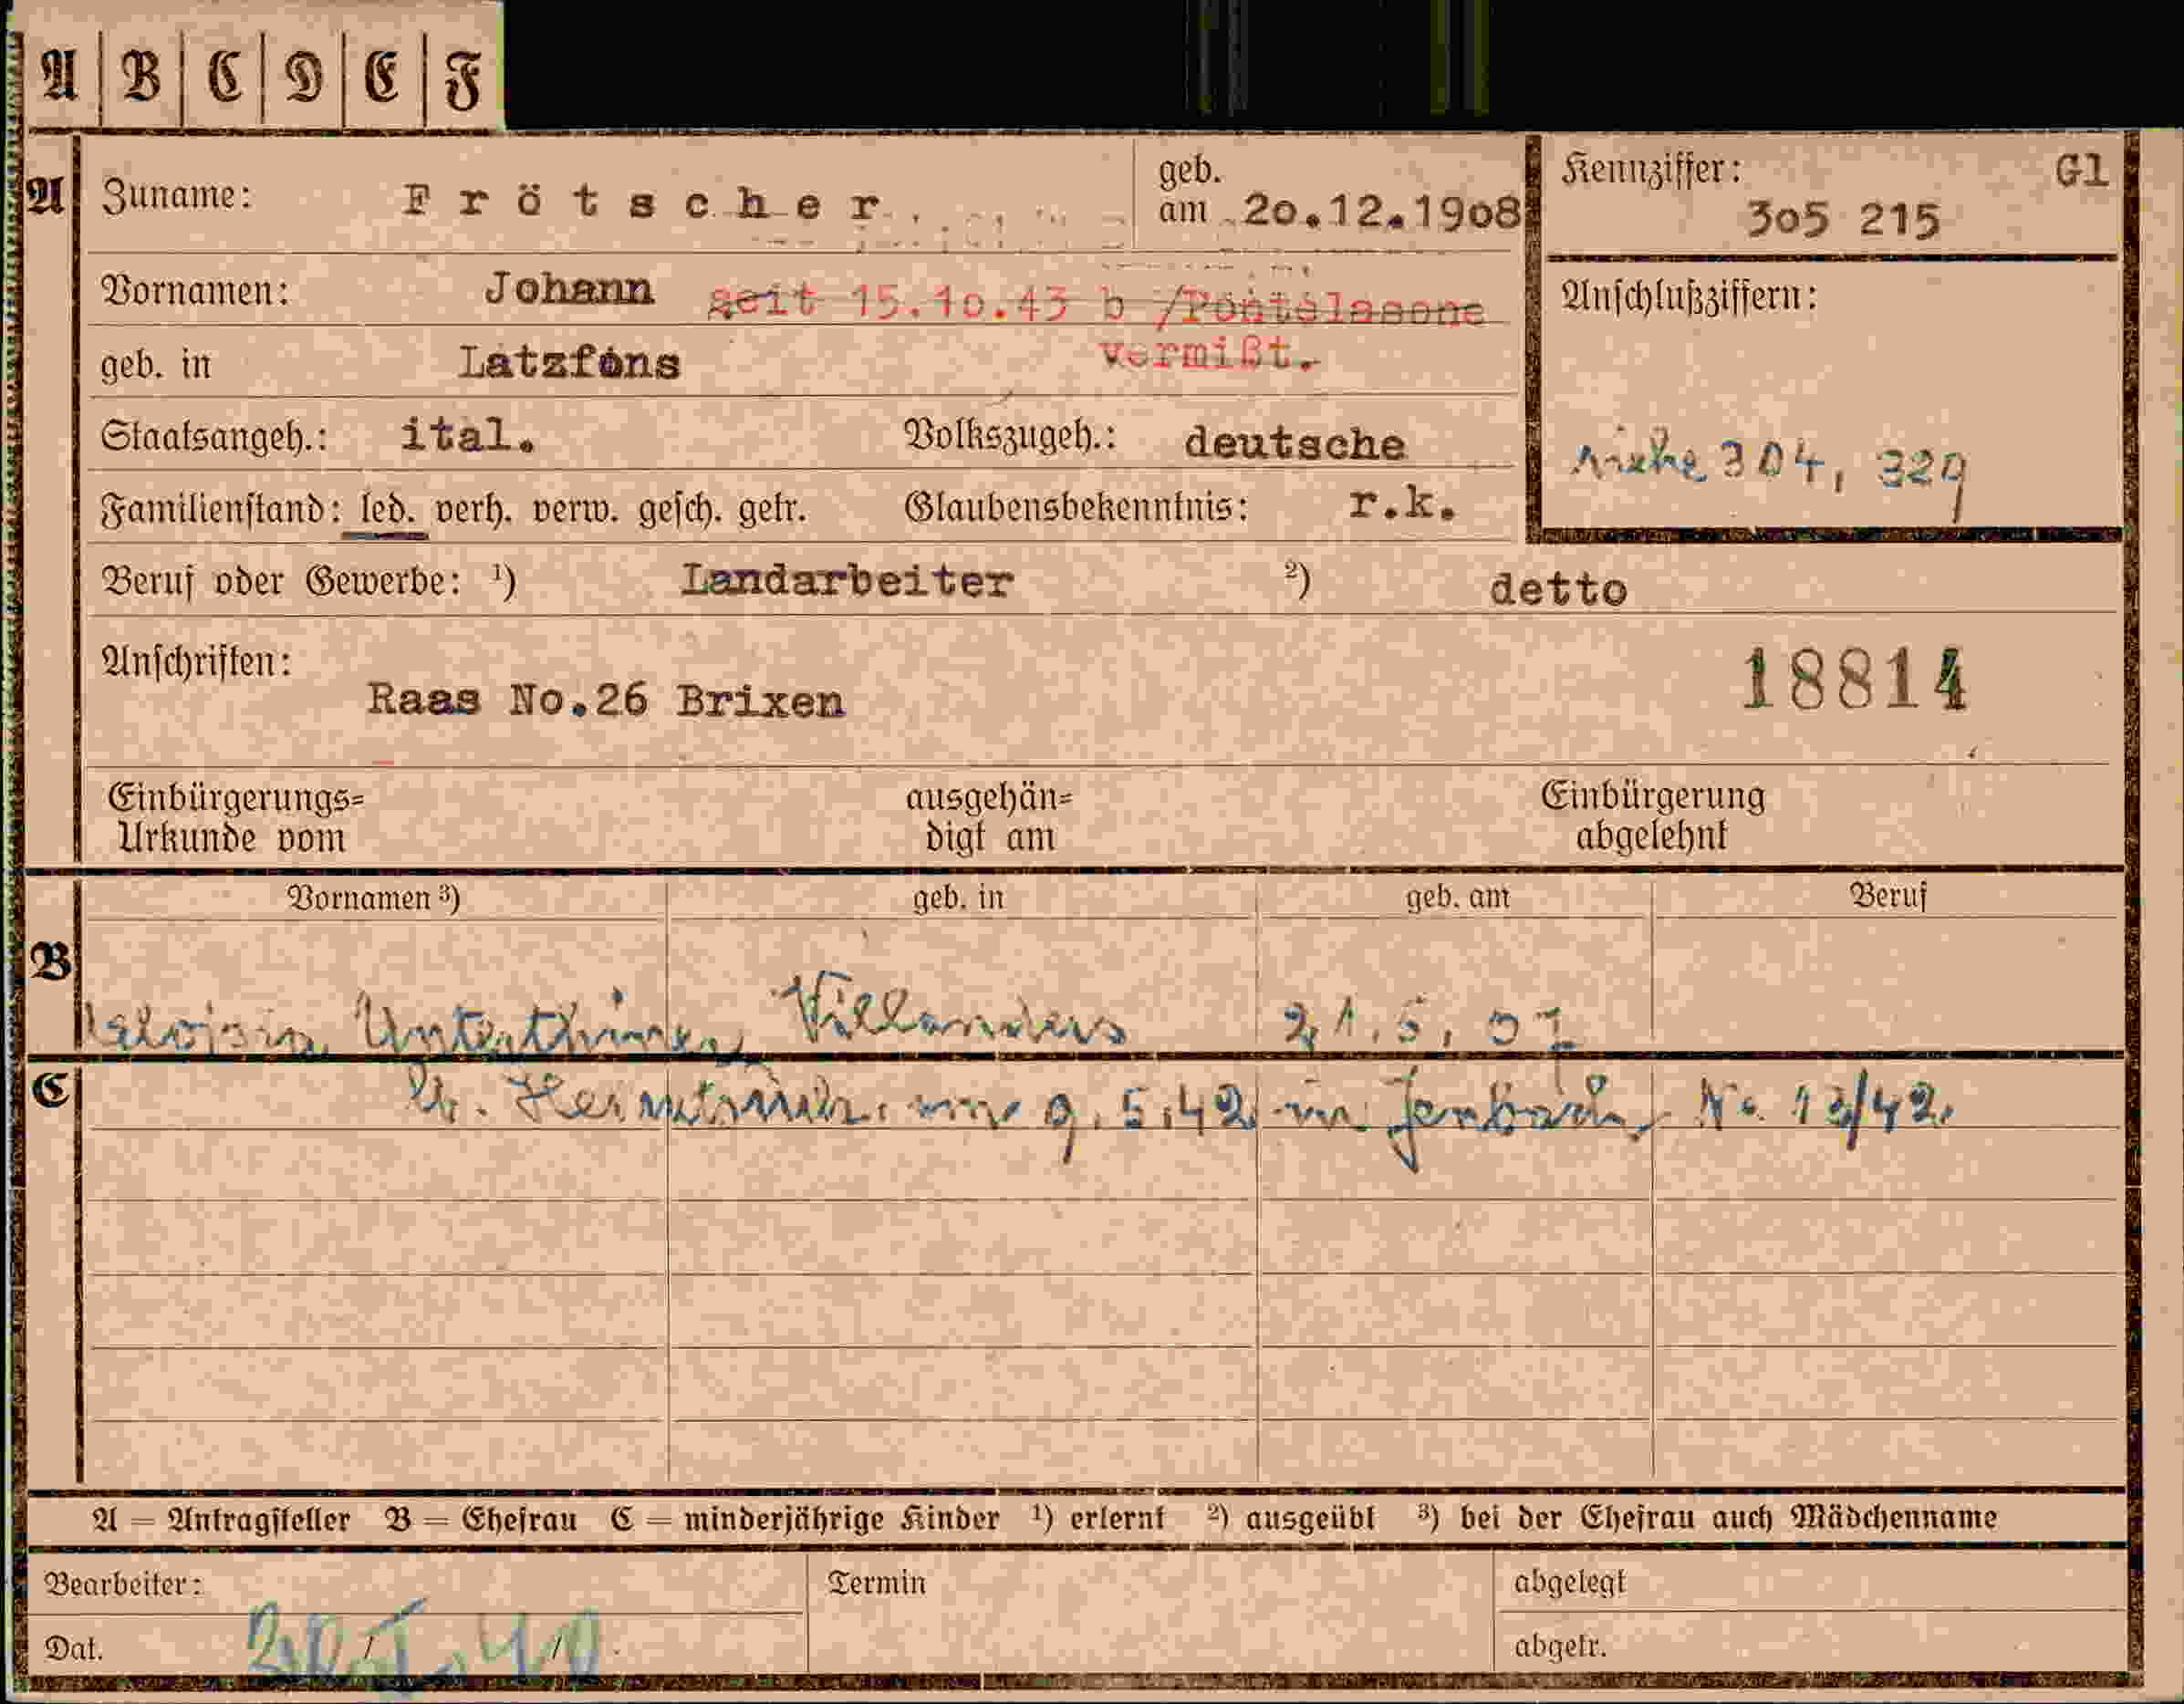 A B C D E F
A Zuname: Frötscher geb. am 20.12.1908 Kennziffer: Gl 305 215
Vornamen: Johann seit 15.10.43 b /Pontelagone vermißt. Anschlußziffern:
geb. in Latzfons
Staatsangeh.: ital. Volkszugeh.: deutsche siehe 304, 329
Familienstand: led. verh. verw. gesch. getr. Glaubensbekenntnis: r.k.
Beruf oder Gewerbe: ¹) Landarbeiter ²) detto
Anschriften: 18814
Raas No.26 Brixen
Einbürgerungs= ausgehän= Einbürgerung
Urkunde vom digt am abgelehnt
Vornamen ³) geb. in geb. am Beruf
B Aloisia Unterthiner Villanders 21.5.07
C lt. Heiratsurk. vom 9.5.42 in Jenbach, No. 13/42.
A = Antragsteller B = Ehefrau C = minderjährige Kinder ¹) erlernt ²) ausgeübt ³) bei der Ehefrau auch Mädchenname
Bearbeiter: Termin abgelegt
Dat. abgetr.